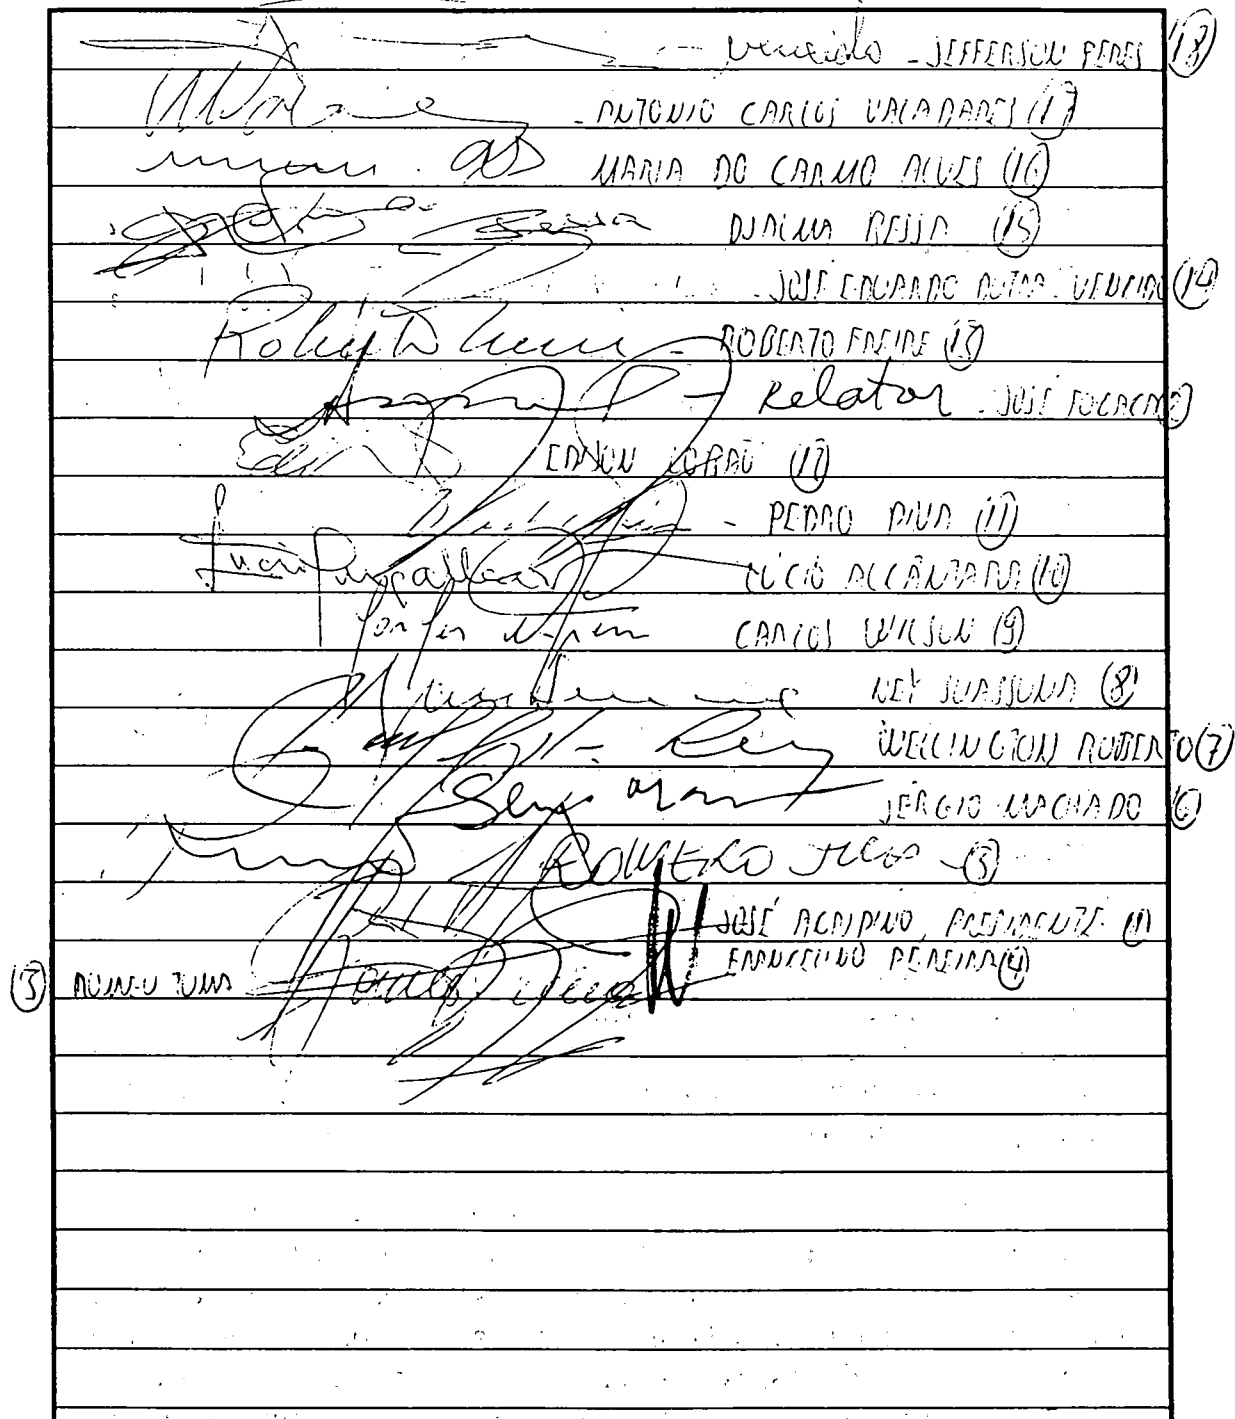 vencido - JEFFERSON PERES (18)
- ANTONIO CARLOS VALADARES (17)
MARIA DO CARMO ALVES (16)
DJALMA BESSA (15)
JOSÉ EDUARDO DUTRA - VENCIDO (14)
- ROBERTO FREIRE (13)
- Relator - JOSÉ FOGAÇA (2)
EDISON LOBÃO (12)
- PEDRO PIVA (11)
LÚCIO ALCÂNTARA (10)
CARLOS WILSON (9)
NEY SUASSUNA (8)
WELLINGTON ROBERTO (7)
SÉRGIO MACHADO (6)
ROMERO JUCÁ - (5)
JOSÉ AGRIPINO, PRESIDENTE (1)
FRANCELINO PEREIRA (4)
(3) ROMEU TUMA